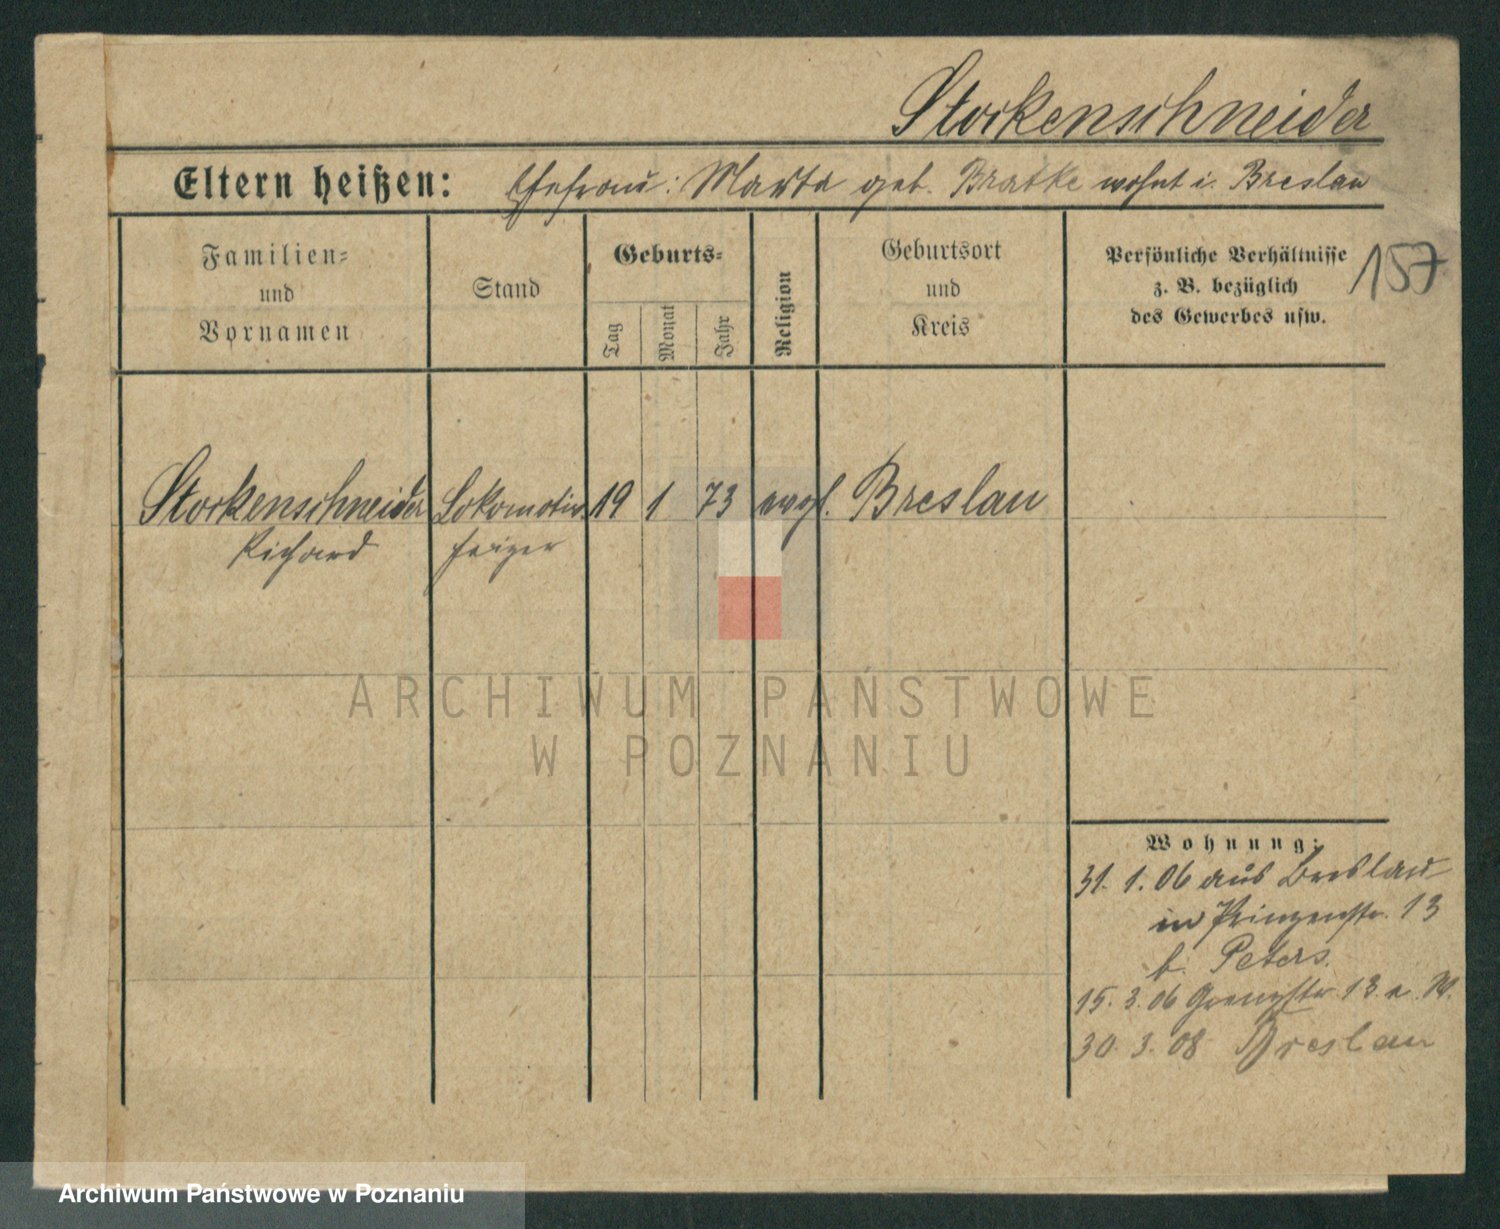 Stockenschneider
Eltern heißen: Ehefrau: Marta geb. Bratke wohnt i. Breslau
Familien-
und
Vornamen
Stand
Geburts-
Tag
Monat
Jahr
Religion
Geburtsort
und
Kreis
Persönliche Verhältnisse
z. B. bezüglich
des Gewerbes usw.
157
Stockenschneider Lokomotiv 19 1 73 evgl. Breslau
Richard heizer
Wohnung:
31. 1. 06 aus Breslau
in Prinzenstr. 13
b. Peters.
15. 3. 06 Grenzstr. 13 a. W.
30. 3. 08 Breslau
ARCHIWUM PAŃSTWOWE
W POZNANIU
Archiwum Państwowe w Poznaniu